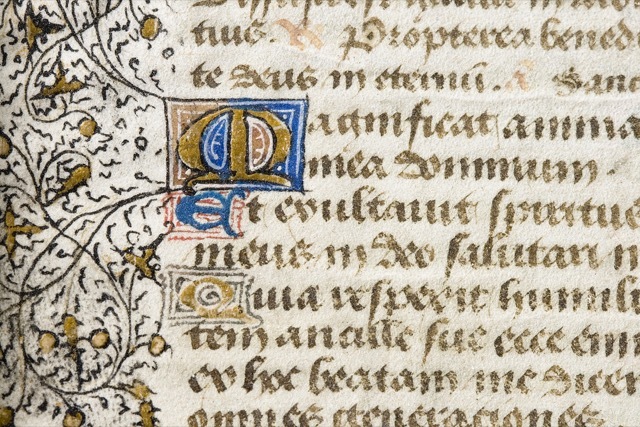 tuus. V Propterea bened
te deus in eternū. A Sanc
Magnificat anima
mea dominum.
Et exultavit spiritus
meus in deo salutari m
Quia respexit humili
tem ancille sue ecce eni
ex hoc beatam me dicen
omnes generaciones